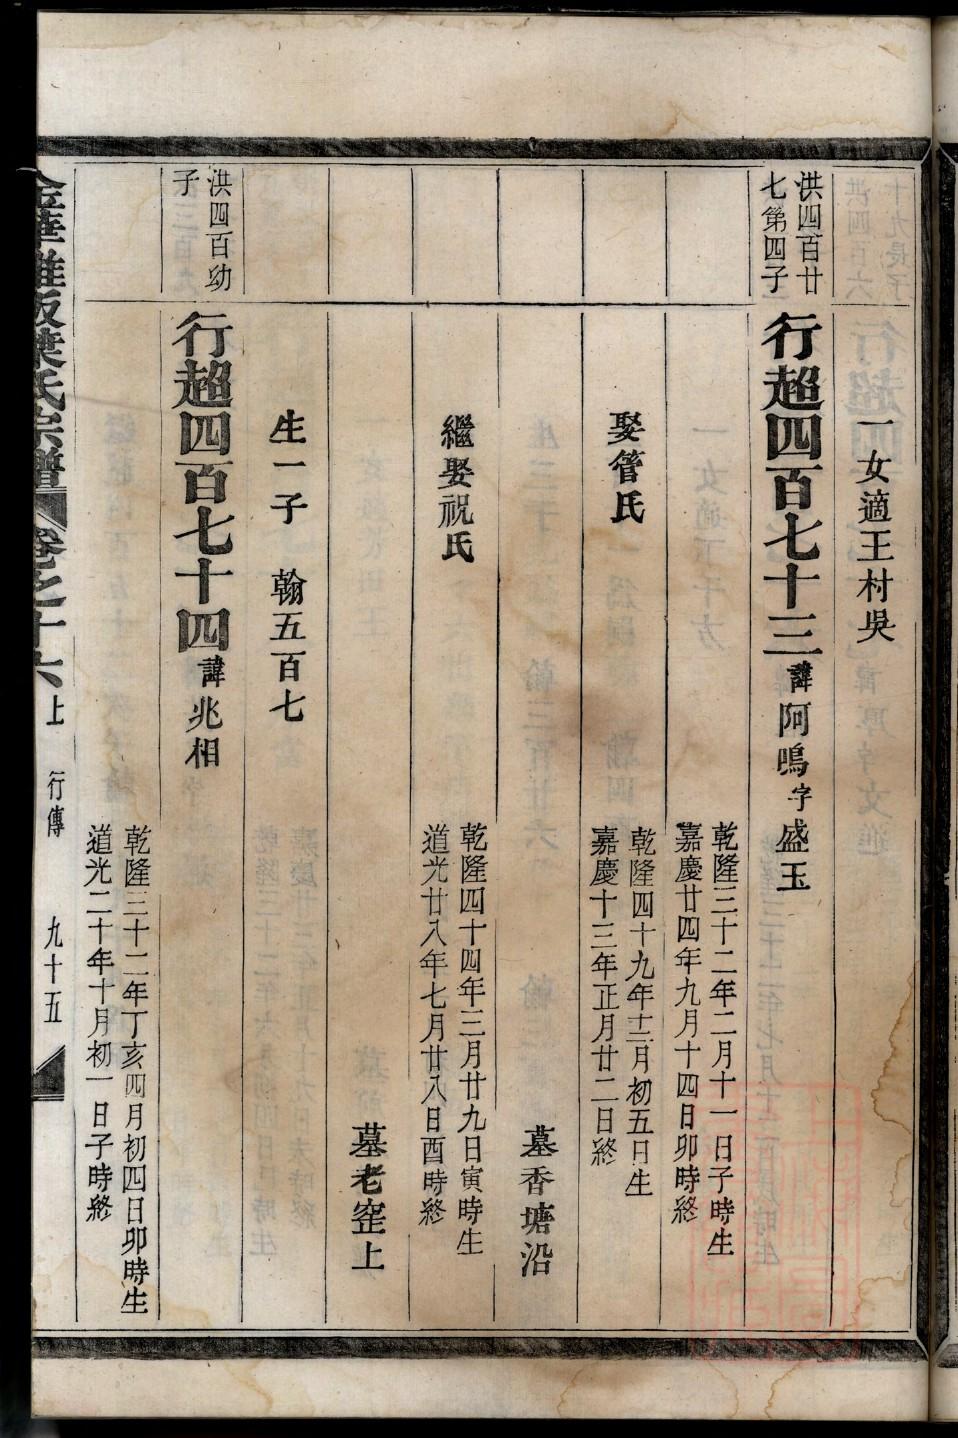 一女適王村吳
洪四百廿
七第四子
行超四百七十三 諱阿鳴字盛玉
乾隆三十二年二月十一日子時生
嘉慶廿四年九月十四日卯時終
娶管氏
乾隆四十九年十二月初五日生
嘉慶十三年正月廿二日終
墓香塘沿
繼娶祝氏
乾隆四十四年三月廿九日寅時生
道光廿八年七月廿八日酉時終
墓老窑上
生一子 翰五百七
洪四百幼
子
行超四百七十四 諱兆相
乾隆三十二年丁亥四月初四日卯時生
道光二十年十月初一日子時終
葉氏宗譜 卷之十六上 行傳 九十五